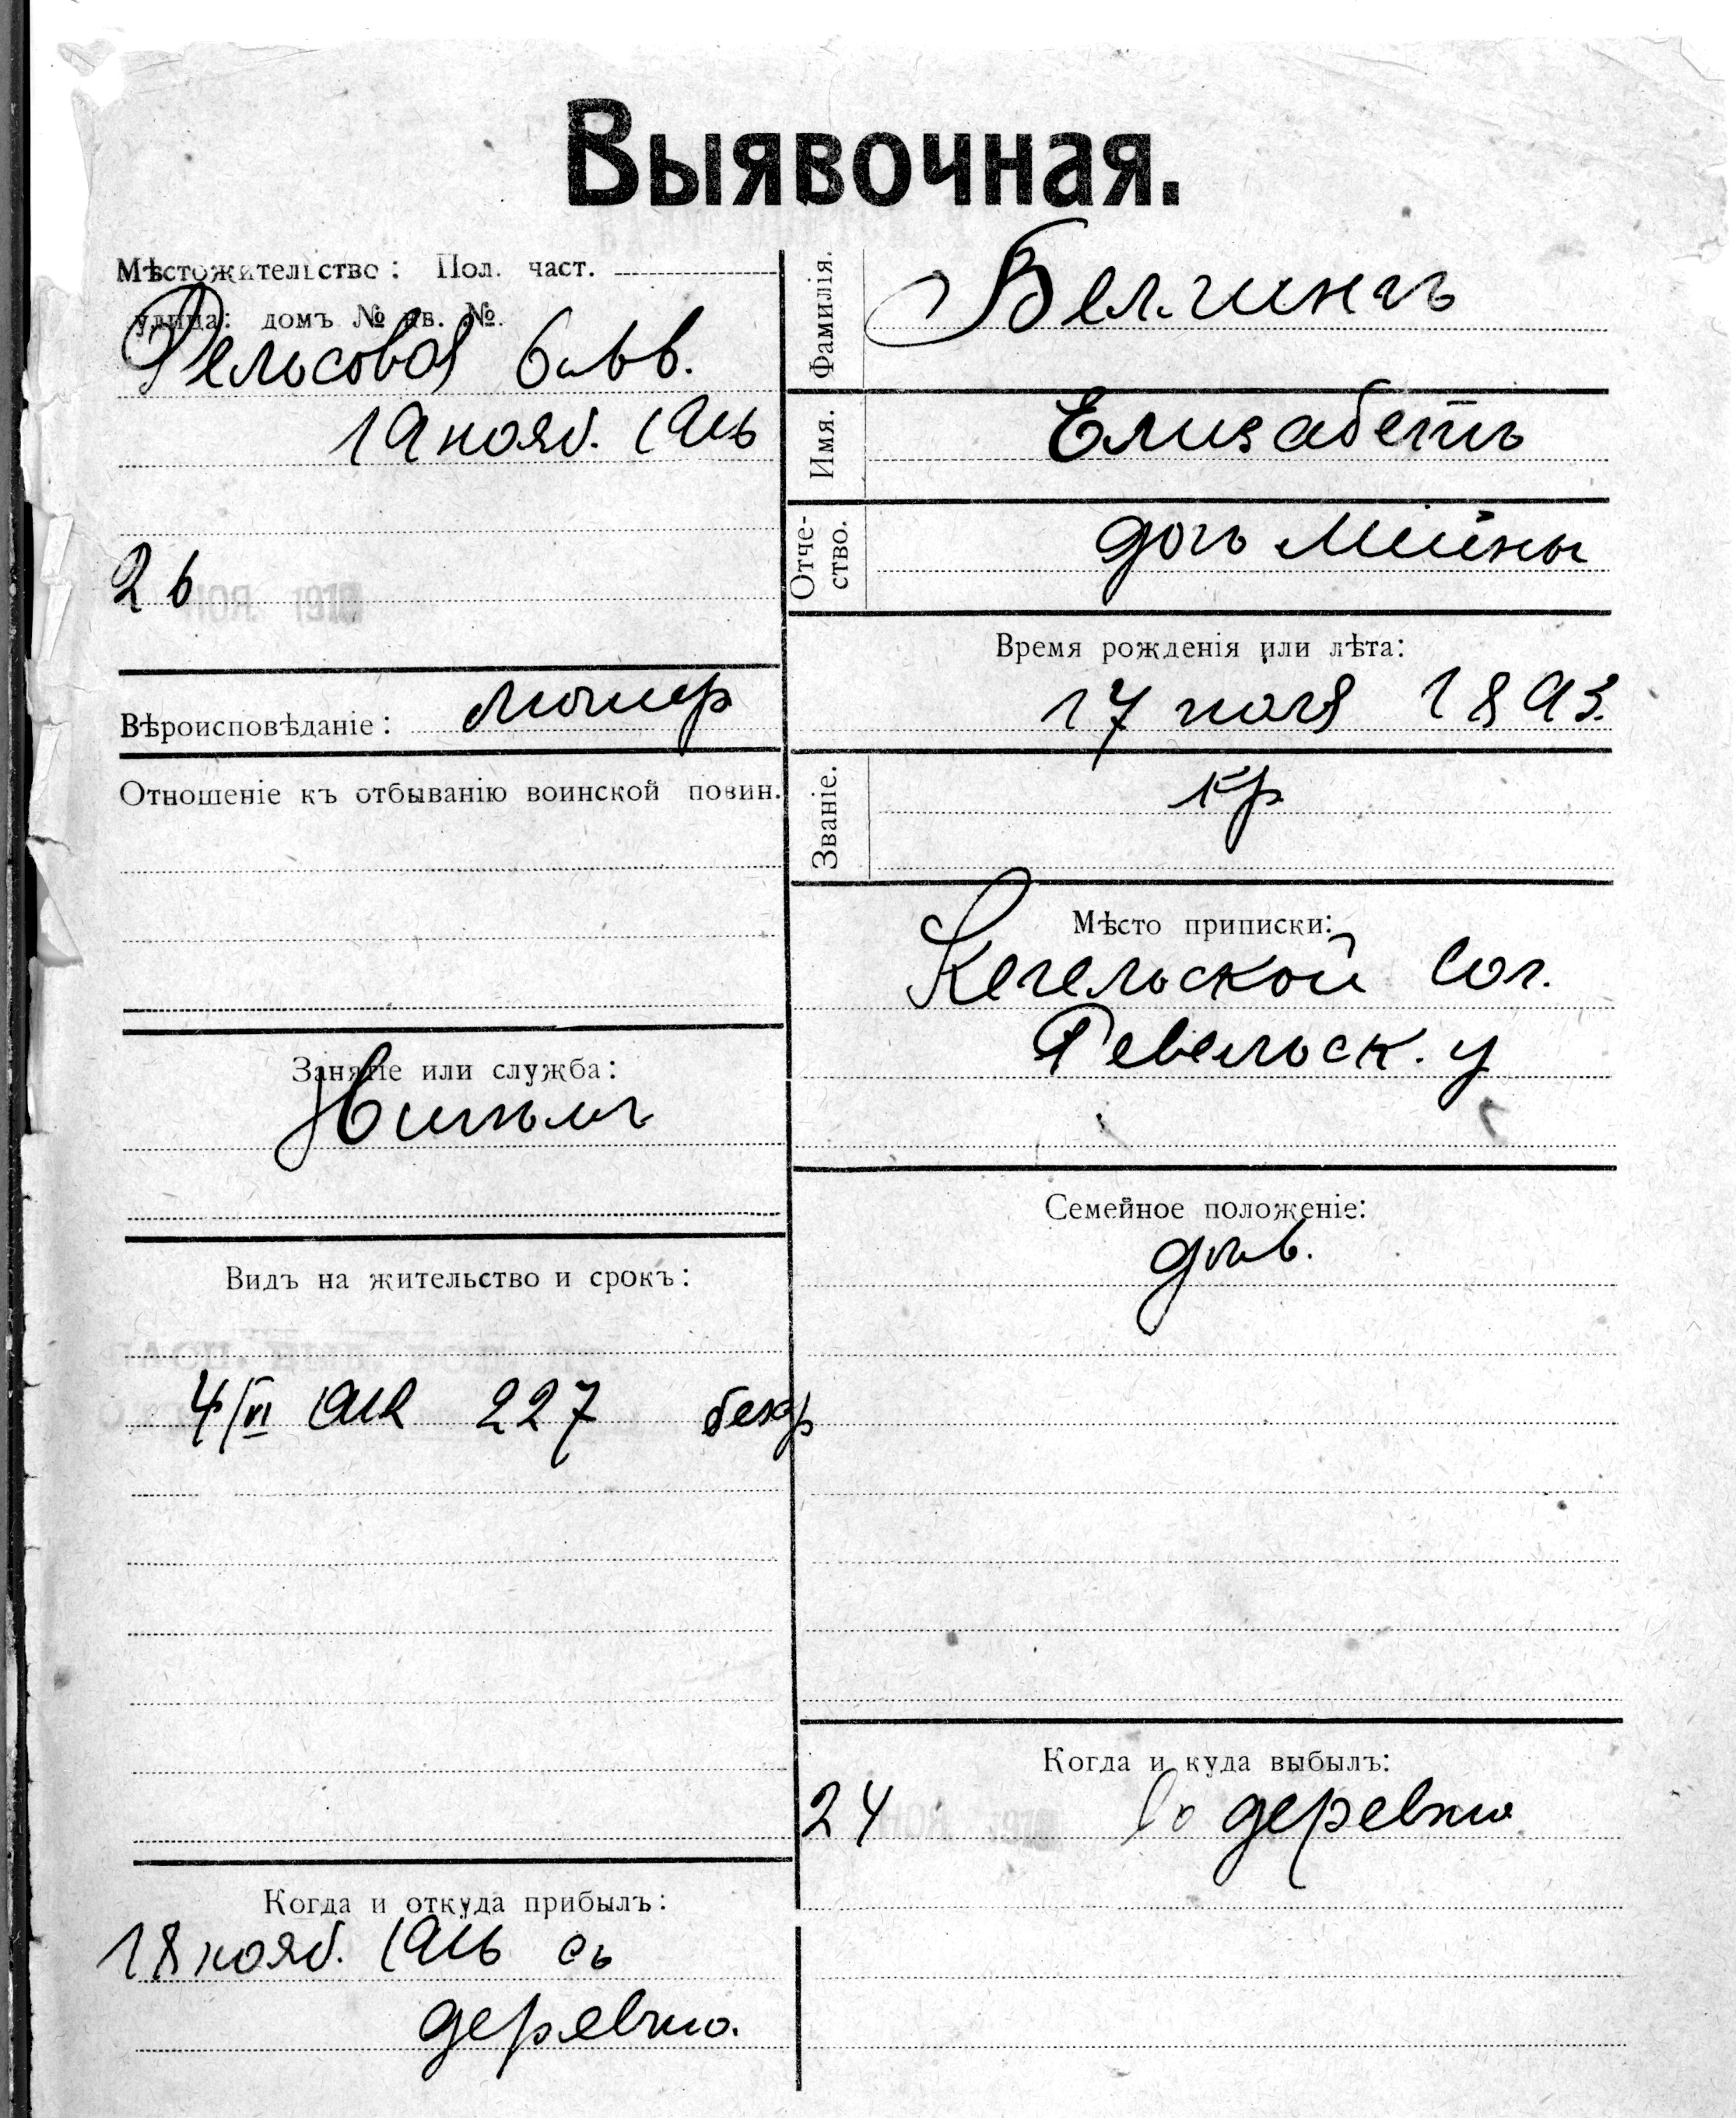 Выявочная.
Мѣстожительство: Пол. част.
улица: домъ № кв. №.
Рельсовая
19 нояб. 1916
26
Вѣроисповѣданіе: лютер
Отношеніе къ отбыванію воинской повин.
Занятіе или служба:
Видъ на жительство и срокъ:
4/VI 1912 227 безср
Когда и откуда прибылъ:
18 нояб. 1916 съ
деревню.
Фамилія. Беллингъ
Имя. Елизабетъ
Отче-
ство. дочь Мины
Время рожденія или лѣта:
17 1893.
Званіе. кр
Мѣсто приписки:
Кегельской вол.
Ревельск. у
Семейное положеніе:
дѣв.
Когда и куда выбылъ:
24 въ деревню